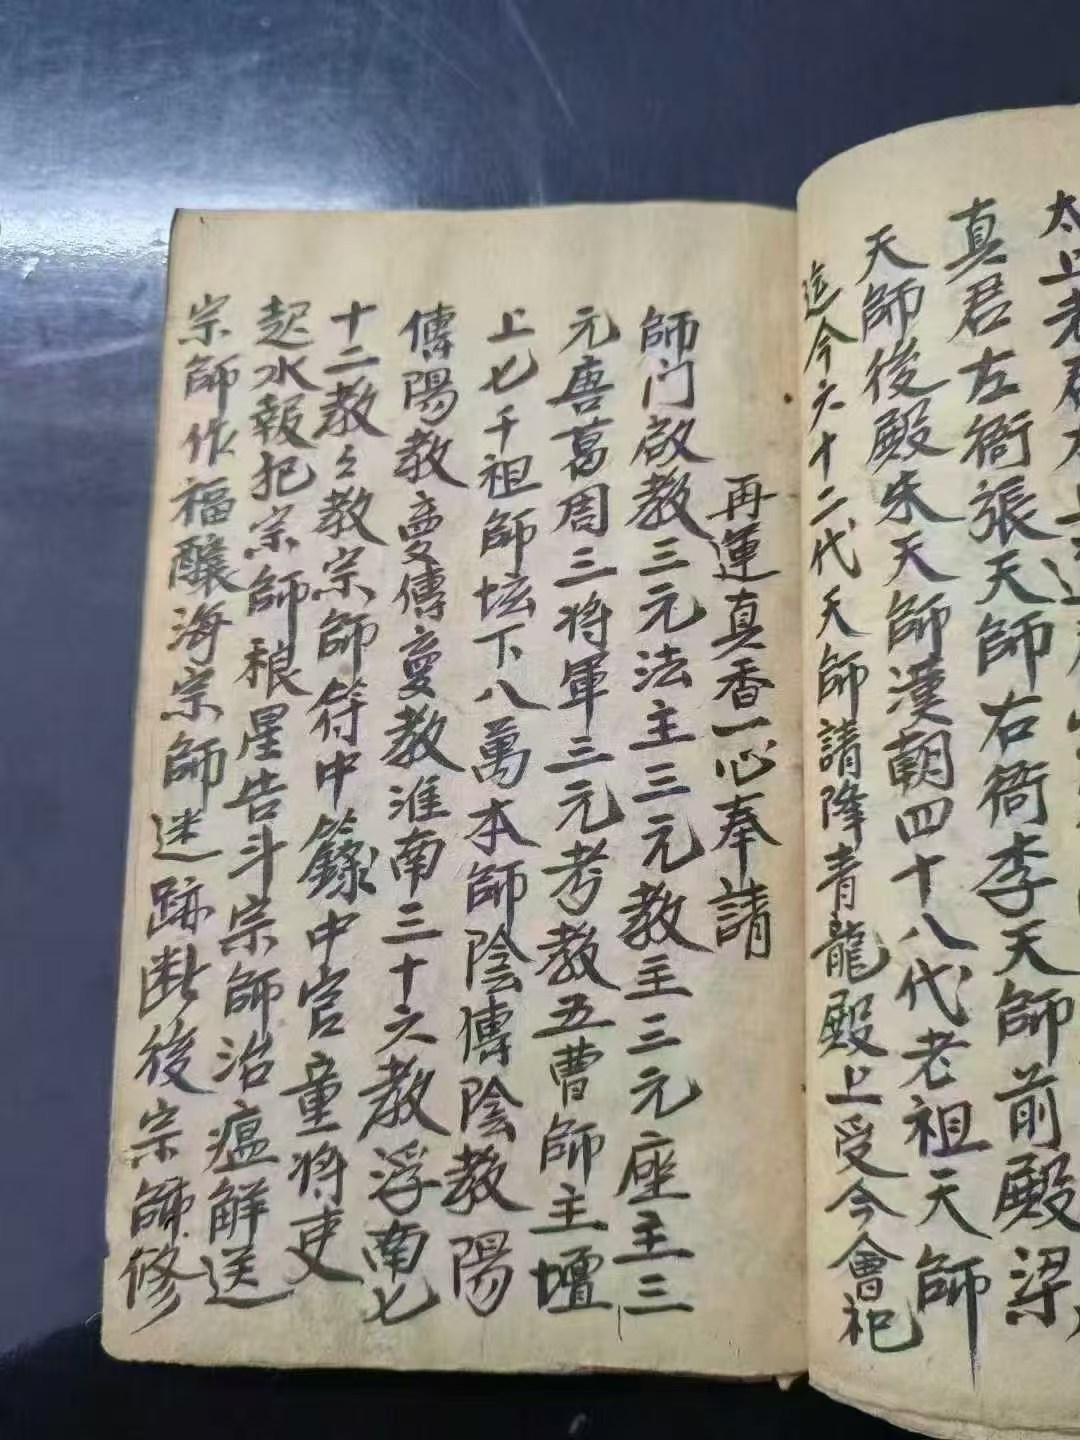 太上老君
真君左衙張天師右衙李天師前殿梁
天師後殿朱天師漢朝四十八代老祖天師
迄今六十二代天師請降青龍殿上受今會祀
再運真香一心奉請
師门啟教三元法主三元教主三元座主三
元唐葛周三将軍三元考教五曹師主壇
上七千祖師坛下八萬本師陰傳陰教陽
傳陽教愛傳愛教淮南三十六教浮南七
十二教々教宗師符中籙中官童将吏
起水報把宗師粮星告斗宗師治瘟解送
宗師作福釀海宗師迷跡断後宗師修